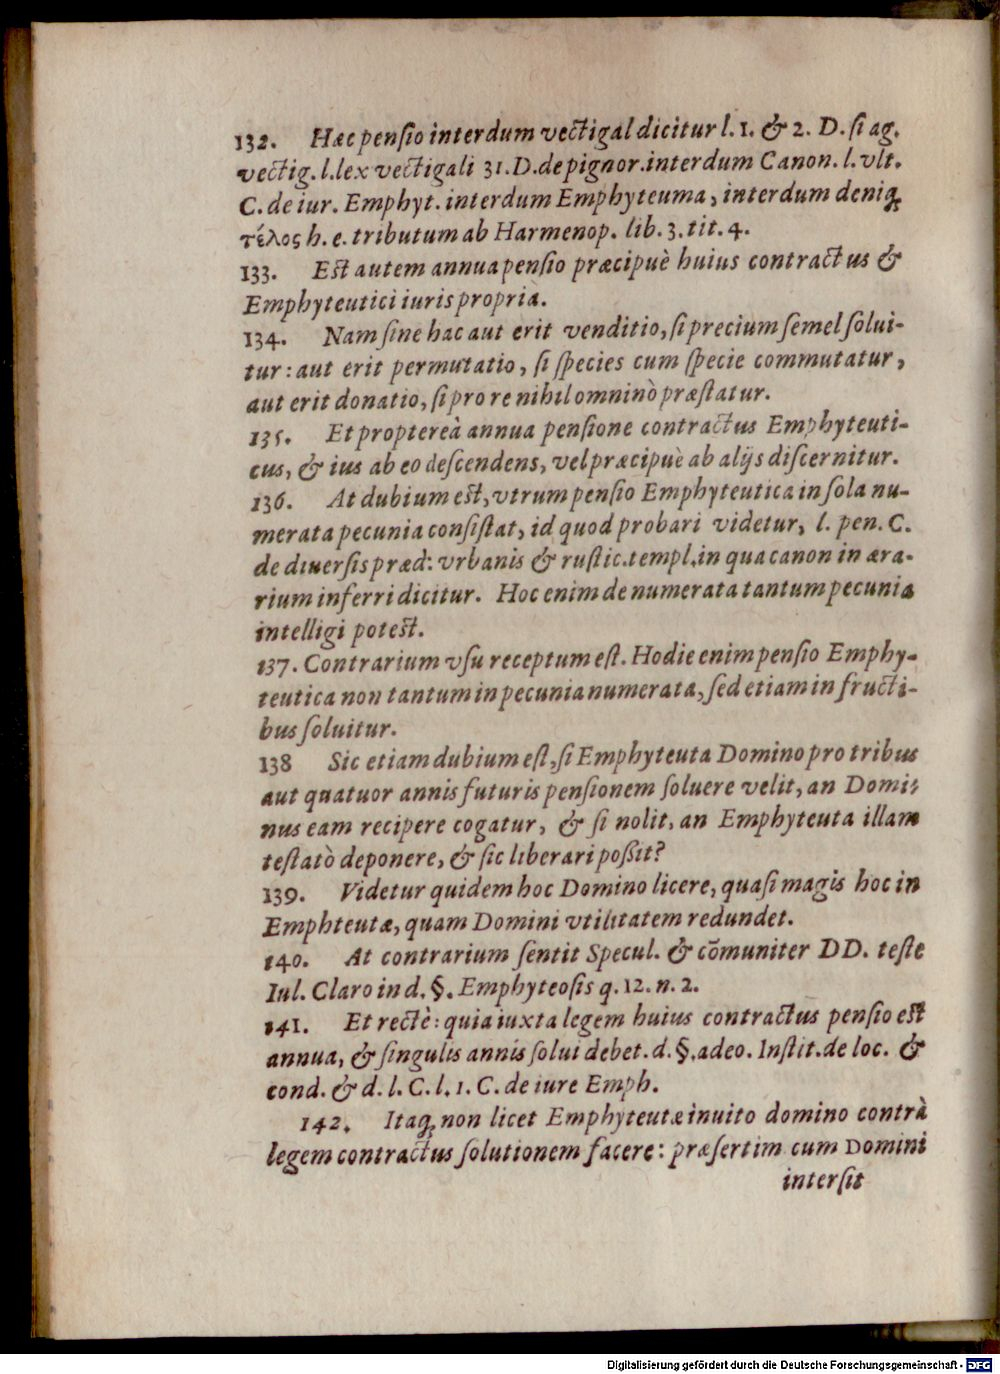 132. Hæc pensio interdum vectigal dicitur l. 1. & 2. D. si ag.
vectig. l. lex vectigali 31. D. de pignor. interdum Canon. l. vlt.
C. de iur. Emphyt. interdum Emphyteuma, interdum deniq;
τέλος h. e. tributum ab Harmenop. lib. 3. tit. 4.
133. Est autem annua pensio præcipuè huius contractus &
Emphyteutici iuris propria.
134. Nam sine hac aut erit venditio, si precium semel solui-
tur: aut erit permutatio, si species cum specie commutatur,
aut erit donatio, si pro re nihil omninò præstatur.
135. Et proptereà annua pensione contractus Emphyteuti-
cus, & ius ab eo descendens, vel præcipuè ab alijs discernitur.
136. At dubium est, vtrum pensio Emphyteutica in sola nu-
merata pecunia consistat, id quod probari videtur, l. pen. C.
de diuersis præd: vrbanis & rustic. templ. in qua canon in æra-
rium inferri dicitur. Hoc enim de numerata tantum pecunia
intelligi potest.
137. Contrarium vsu receptum est. Hodie enim pensio Emphy-
teutica non tantum in pecunia numerata, sed etiam in fructi-
bus soluitur.
138 Sic etiam dubium est, si Emphyteuta Domino pro tribus
aut quatuor annis futuris pensionem soluere velit, an Domi-
nus eam recipere cogatur, & si nolit, an Emphyteuta illam
testatò deponere, & sic liberari possit?
139. Videtur quidem hoc Domino licere, quasi magis hoc in
Emphteutæ, quam Domini vtilitatem redundet.
140. At contrarium sentit Specul. & cõmuniter DD. teste
Iul. Claro in d. §. Emphyteosis q. 12. n. 2.
141. Et rectè: quia iuxta legem huius contractus pensio est
annua, & singulis annis solui debet. d. §. adeo. Instit. de loc. &
cond. & d. l. C. l. 1. C. de iure Emph.
142. Itaq; non licet Emphyteutæ inuito domino contrà
legem contractus solutionem facere: præsertim cum Domini
intersit
Digitalisierung gefördert durch die Deutsche Forschungsgemeinschaft - DFG